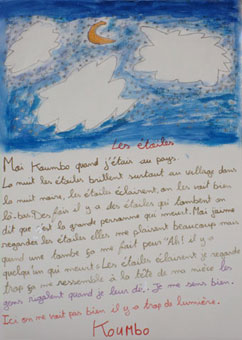 Les étoiles
Moi Koumbo quand j'étais au pays.
La nuit les étoiles brillent surtout au village dans
la nuit noire, les étoiles éclairent, on les voit bien
là-bas. Des fois il y a des étoiles qui tombent on
dit que c'est la grande personne qui meurt. Moi j'aime
regarder les étoiles elles me plaisent beaucoup mais
quand une tombe ça me fait peur "Ah! il y a
quelqu'un qui meurt". Les étoiles éclairent je regarde
trop ça me ressemble à la tête de ma mère les
gens rigolent quand je leur dis. Je me sens bien.
Ici on ne voit pas bien il y a trop de lumière.
Koumbo